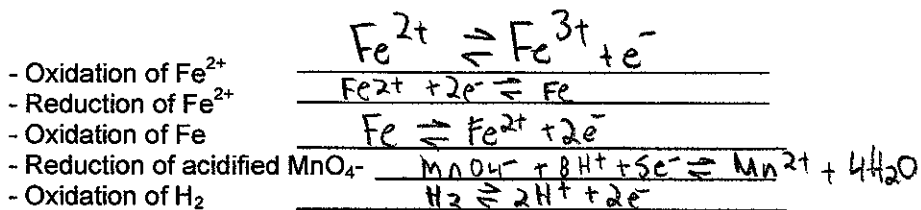 - Oxidation of Fe²⁺ Fe²⁺ ⇌ Fe³⁺ + e⁻
- Reduction of Fe²⁺ Fe²⁺ + 2e⁻ ⇌ Fe
- Oxidation of Fe Fe ⇌ Fe²⁺ + 2e⁻
- Reduction of acidified MnO₄- MnO₄⁻ + 8H⁺ + 5e⁻ ⇌ Mn²⁺ + 4H₂O
- Oxidation of H₂ H₂ ⇌ 2H⁺ + 2e⁻